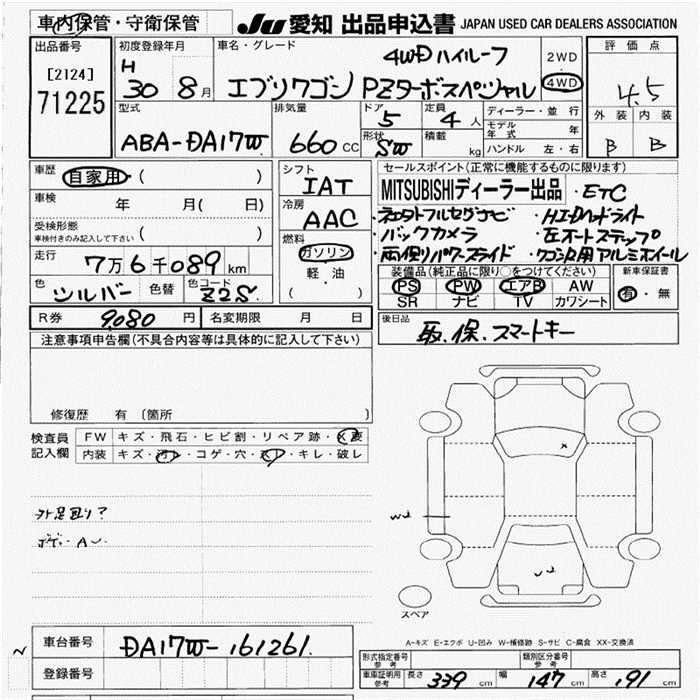 車内保管・守衛保管
JU 愛知 出品申込書 JAPAN USED CAR DEALERS ASSOCIATION
出品番号
[2124]
71225
初度登録年月
H
30 8月
車名・グレード
4WDハイルーフ
エブリワゴン PZターボスペシャル
2WD
4WD
評価点
4.5
外装 内装
B B
型式
ABA-DA17W
排気量
660 cc
ドア
5
形状
SW
定員
4人
積載
kg
ディーラー・並行
モデル年式 年
ハンドル 左・右
車歴 自家用 ( )
車検 年 月( 日)
受検形態
車検付きのみ記入して下さい ( )
走行
7万6千089km
色 シルバー 色替 色コード Z2S
シフト
IAT
冷房
AAC
燃料
ガソリン
軽・油
( )
セールスポイント(正常に機能するものに限ります)
MITSUBISHIディーラー出品 ・ETC
・バックカメラ ・左オートステップ
・両側パワースライド ・ワゴンR用アルミホイール
装備品(純正品に限り○をつけてください)
PS PW エアB AW
SR ナビ TV カワシート
新車保証書
有・無
R券 9,080 円 名変期限 月 日
後日品
取.保.スマートキー
注意事項申告欄(不具合内容等は具体的に記入して下さい)
修復歴 有 (箇所 )
検査員
記入欄
FW キズ・飛石・ヒビ割・リペア跡・X要
内装 キズ・汚レ・コゲ・穴・スレ・キレ・破レ
スペア
A-キズ E-エクボ U-凹み W-補修跡 S-サビ C-腐食 XX-交換済
車台番号 DA17W-161261
登録番号
形式指定番号
参考
類別区分番号
参考
車庫証明用
参考
長さ 339 cm 幅 147 cm 高さ 191 cm